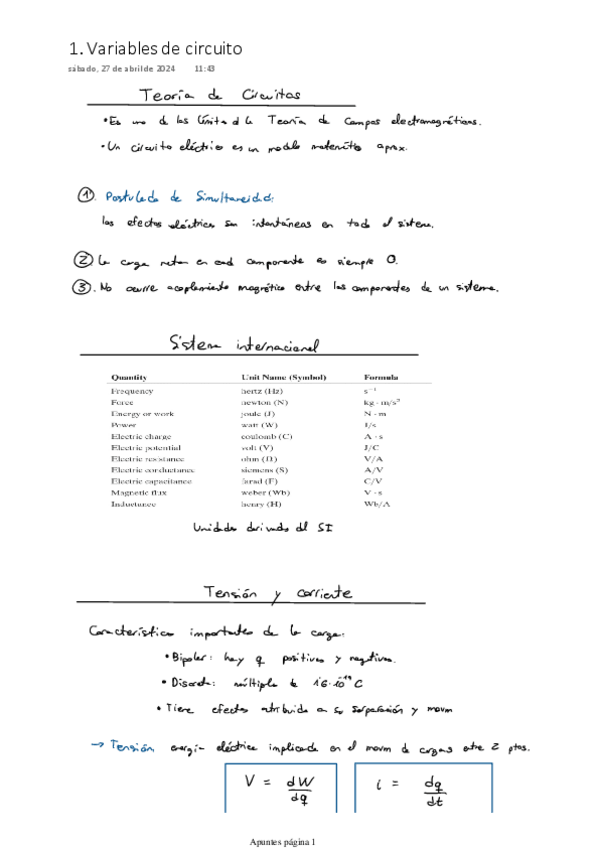 1. Variables de circuito
sábado, 27 de abril de 2024 11:43
Teoría de Circuitos
• Es uno de los límites d la Teoría de Campos electromagnéticos.
• Un circuito eléctrico es un modelo matemático aprox.
1. Postulado de Simultaneidad:
los efectos eléctricos son instantáneos en todo el sistema.
2 La carga neta en cada componente es siempre 0.
3. No ocurre acoplamiento magnético entre los componentes de un sistema.
Sistema internacional
Quantity Unit Name (Symbol) Formula
Frequency hertz (Hz) s⁻¹
Force newton (N) kg · m/s²
Energy or work joule (J) N · m
Power watt (W) J/s
Electric charge coulomb (C) A · s
Electric potential volt (V) J/C
Electric resistance ohm (Ω) V/A
Electric conductance siemens (S) A/V
Electric capacitance farad (F) C/V
Magnetic flux weber (Wb) V · s
Inductance henry (H) Wb/A
Unidades derivadas del SI
Tensión y corriente
Características importantes de la carga:
• Bipolar: hay q positivas y negativas.
• Discreta: múltiplo de 1'6·10 C
• Tiene efectos atribuidos a su separación y movm
→ Tensión energía eléctrica implicada en el movm de cargas entre 2 ptos.
V = dW/dq i = dq/dt
Apuntes página 1